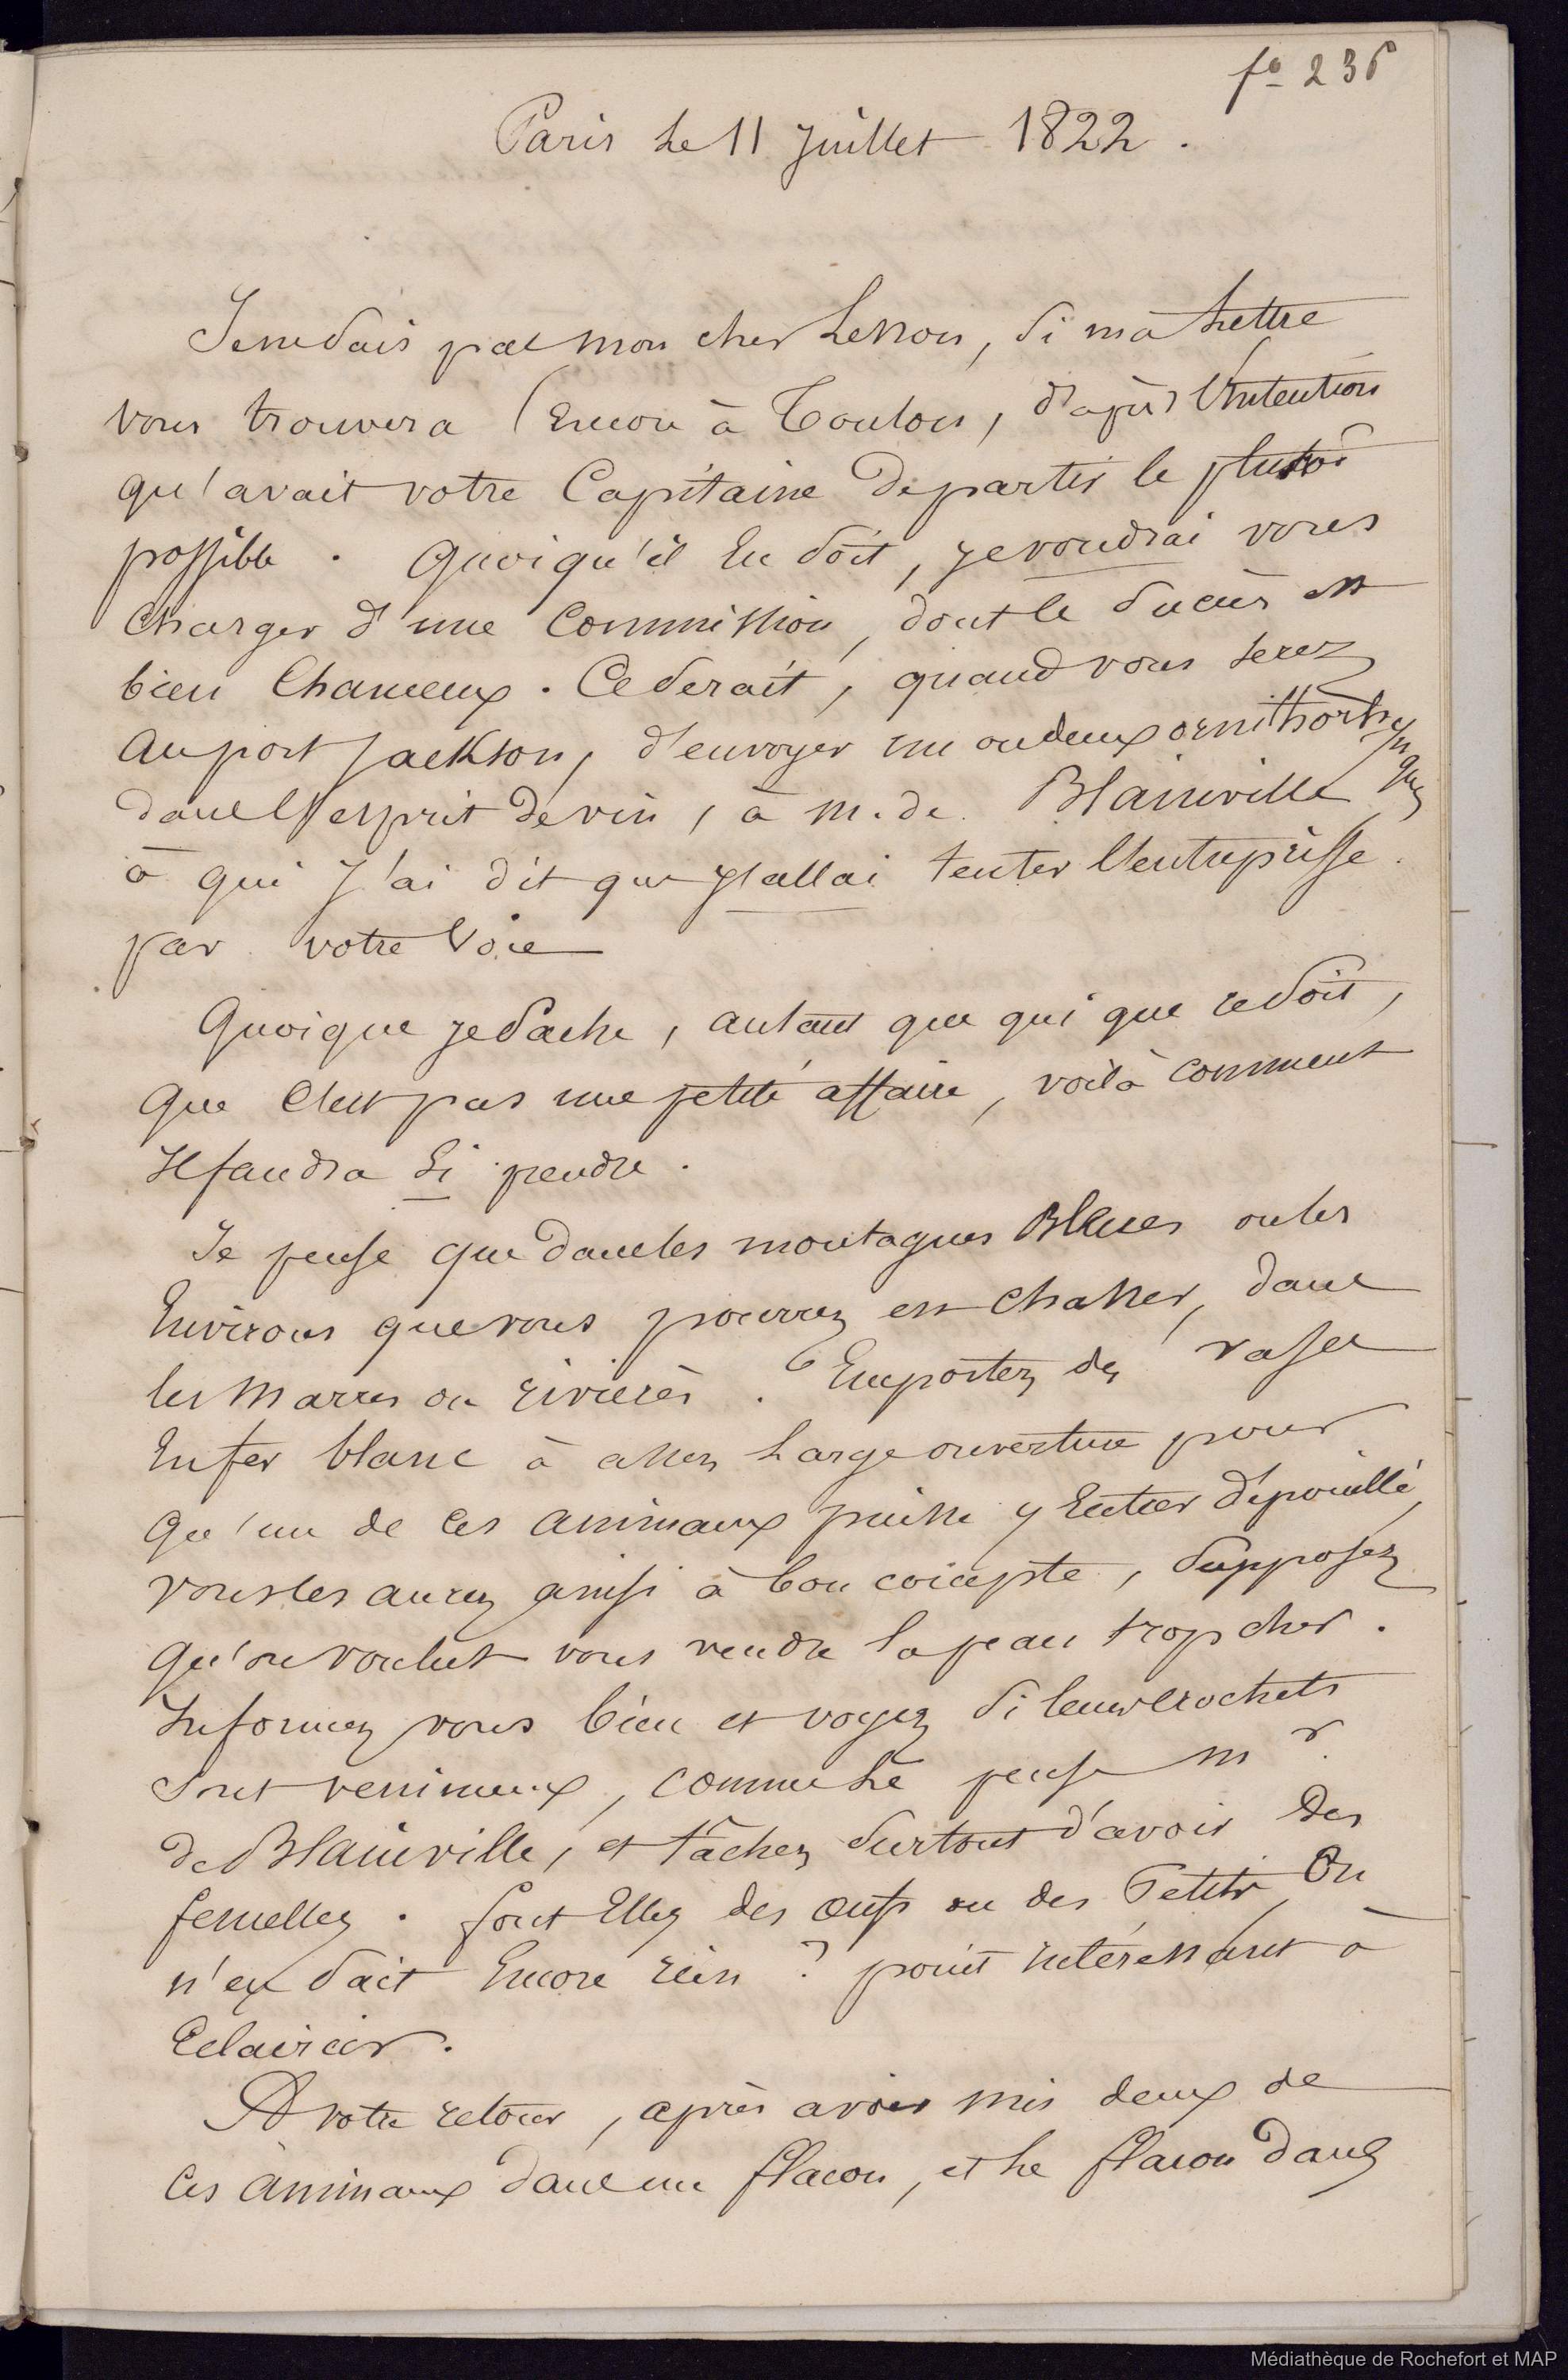 fo 236
Paris Le 11 Juillet 1822.
Je ne Sais pas mon cher Lesson, Si ma Lettre
vous trouvera Encore à Toulon, d'après l'intention
qu'avait votre Capitaine de partir le plutot
possible. Quoiqu'il En Soit, je voudrai vous
Charger d'une Commission, dont le Succès est
bien Chanceux. Ce Serait, quand vous Serez
au port Jackson, d'envoyer un ou deux ornithorhynques
dans l'esprit de vin, à m. de Blainville
à qui J'ai dit que j'allai tenter l'entreprisse
par votre Voie
Quoique je Sache, autant que qui que ce Soit,
que C'est pas une petite affaire, voilà comment
Il faudra Si prendre.
Je pense que dans les montagnes Bleues ou les
Environs que vous pourrez en Chasser, dans
les Marres ou rivierès. Emportez des vases
En fer blanc à assez Large ouverture pour
qu'un de Ces animaux puisse y Entrer dépouillé,
vous les aurez ainsi à bon compte, Supposez
qu'on voulut vous vendre la peau trop cher.
Informez vous bien et voyez Si leurs crochets
Sont venimeux, comme Le pense Mr.
de Blainville, et tâchez Surtout d'avoir Des
femelles. font Elles des œufs ou des Petits, On
n'en Sait Encore rien? point intéressant à
Eclaircir.
A votre retour, après avoir mis deux de
Ces Animaux dans un flacon, et Le flacon dans
Médiathèque de Rochefort et MAP